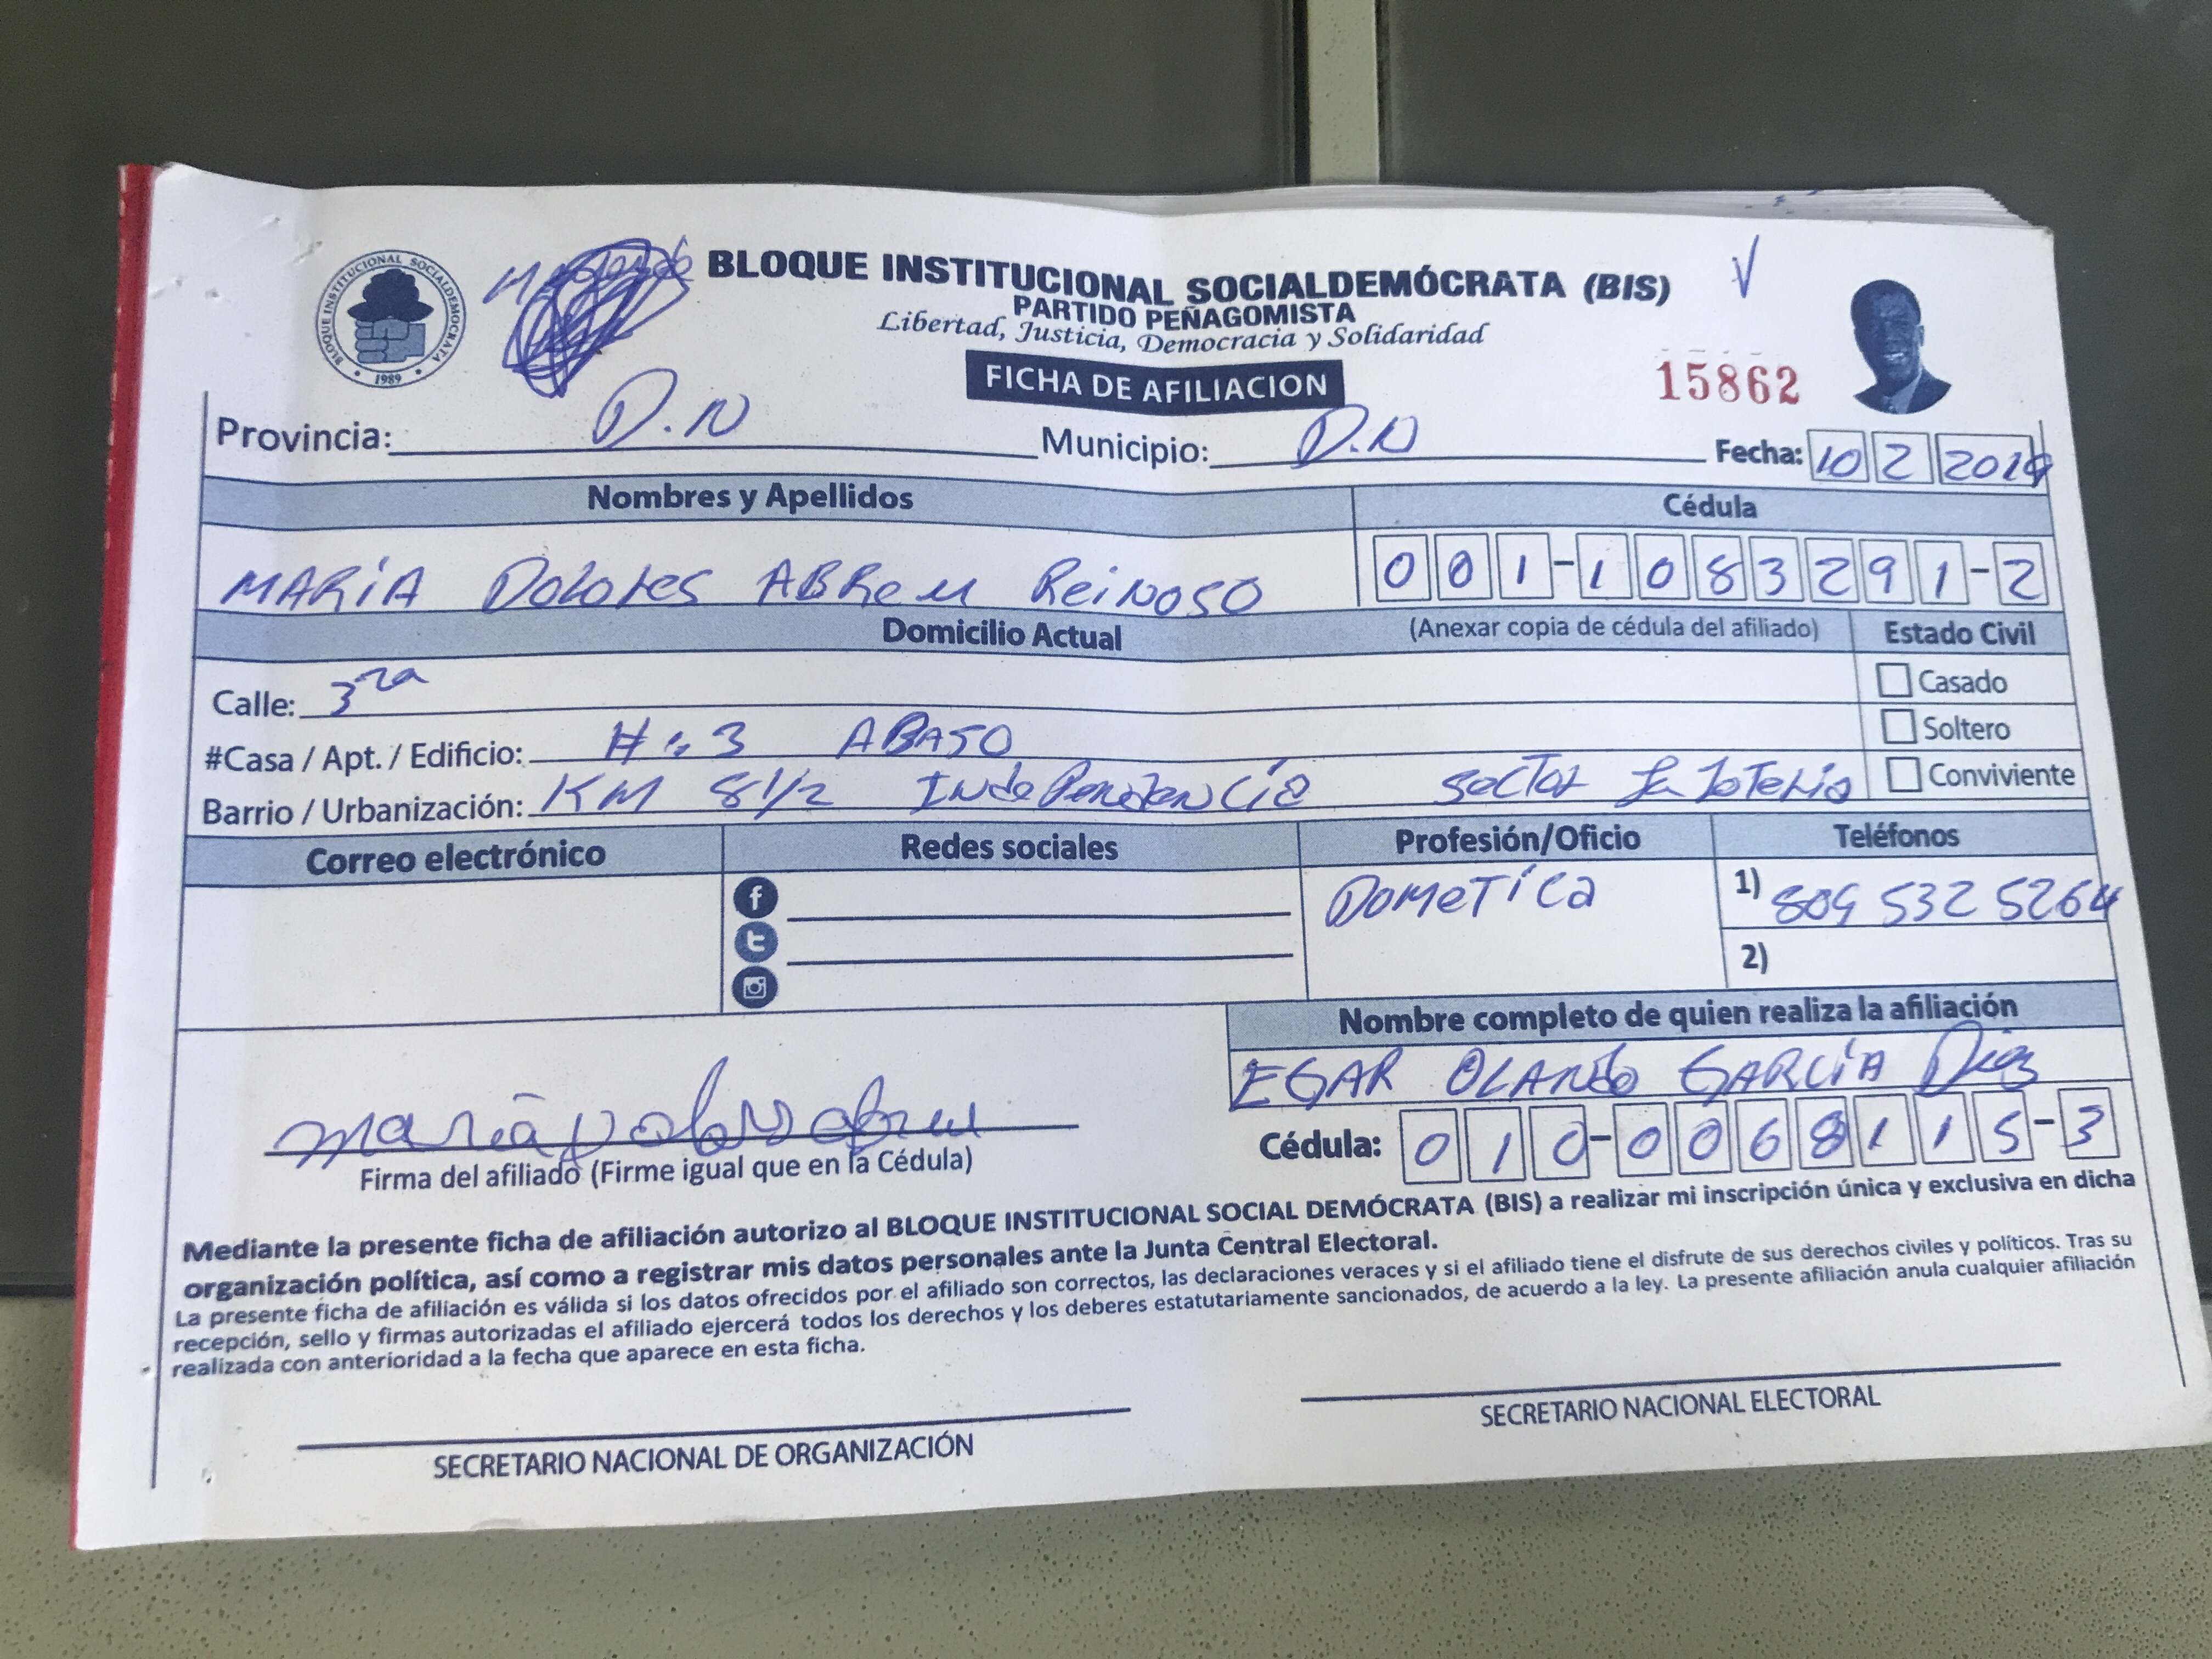 BLOQUE INSTITUCIONAL SOCIALDEMOCRATA
1989
BLOQUE INSTITUCIONAL SOCIALDEMÓCRATA (BIS)
PARTIDO PEÑAGOMISTA
Libertad, Justicia, Democracia y Solidaridad
FICHA DE AFILIACION
15862
Provincia: D.N Municipio: D.N Fecha: 10 2 2019
Nombres y Apellidos Cédula
MARIA Dolores ABReu ReiNoso 001-1083291-2
Domicilio Actual (Anexar copia de cédula del afiliado) Estado Civil
Calle: 3ra Casado
#Casa / Apt. / Edificio: #: 3 ABAJO Soltero
Barrio / Urbanización: KM 8 1/2 INdePendenCia sector La Loteria Conviviente
Correo electrónico Redes sociales Profesión/Oficio Teléfonos
DOMeTica 1) 809 532 5264
2)
Nombre completo de quien realiza la afiliación
EGAR OLANdo GARCIA Diaz
maria Dolores abreu
Firma del afiliado (Firme igual que en la Cédula) Cédula: 010-0068115-3
Mediante la presente ficha de afiliación autorizo al BLOQUE INSTITUCIONAL SOCIAL DEMÓCRATA (BIS) a realizar mi inscripción única y exclusiva en dicha
organización política, así como a registrar mis datos personales ante la Junta Central Electoral.
La presente ficha de afiliación es válida si los datos ofrecidos por el afiliado son correctos, las declaraciones veraces y si el afiliado tiene el disfrute de sus derechos civiles y políticos. Tras su
recepción, sello y firmas autorizadas el afiliado ejercerá todos los derechos y los deberes estatutariamente sancionados, de acuerdo a la ley. La presente afiliación anula cualquier afiliación
realizada con anterioridad a la fecha que aparece en esta ficha.
SECRETARIO NACIONAL DE ORGANIZACIÓN SECRETARIO NACIONAL ELECTORAL